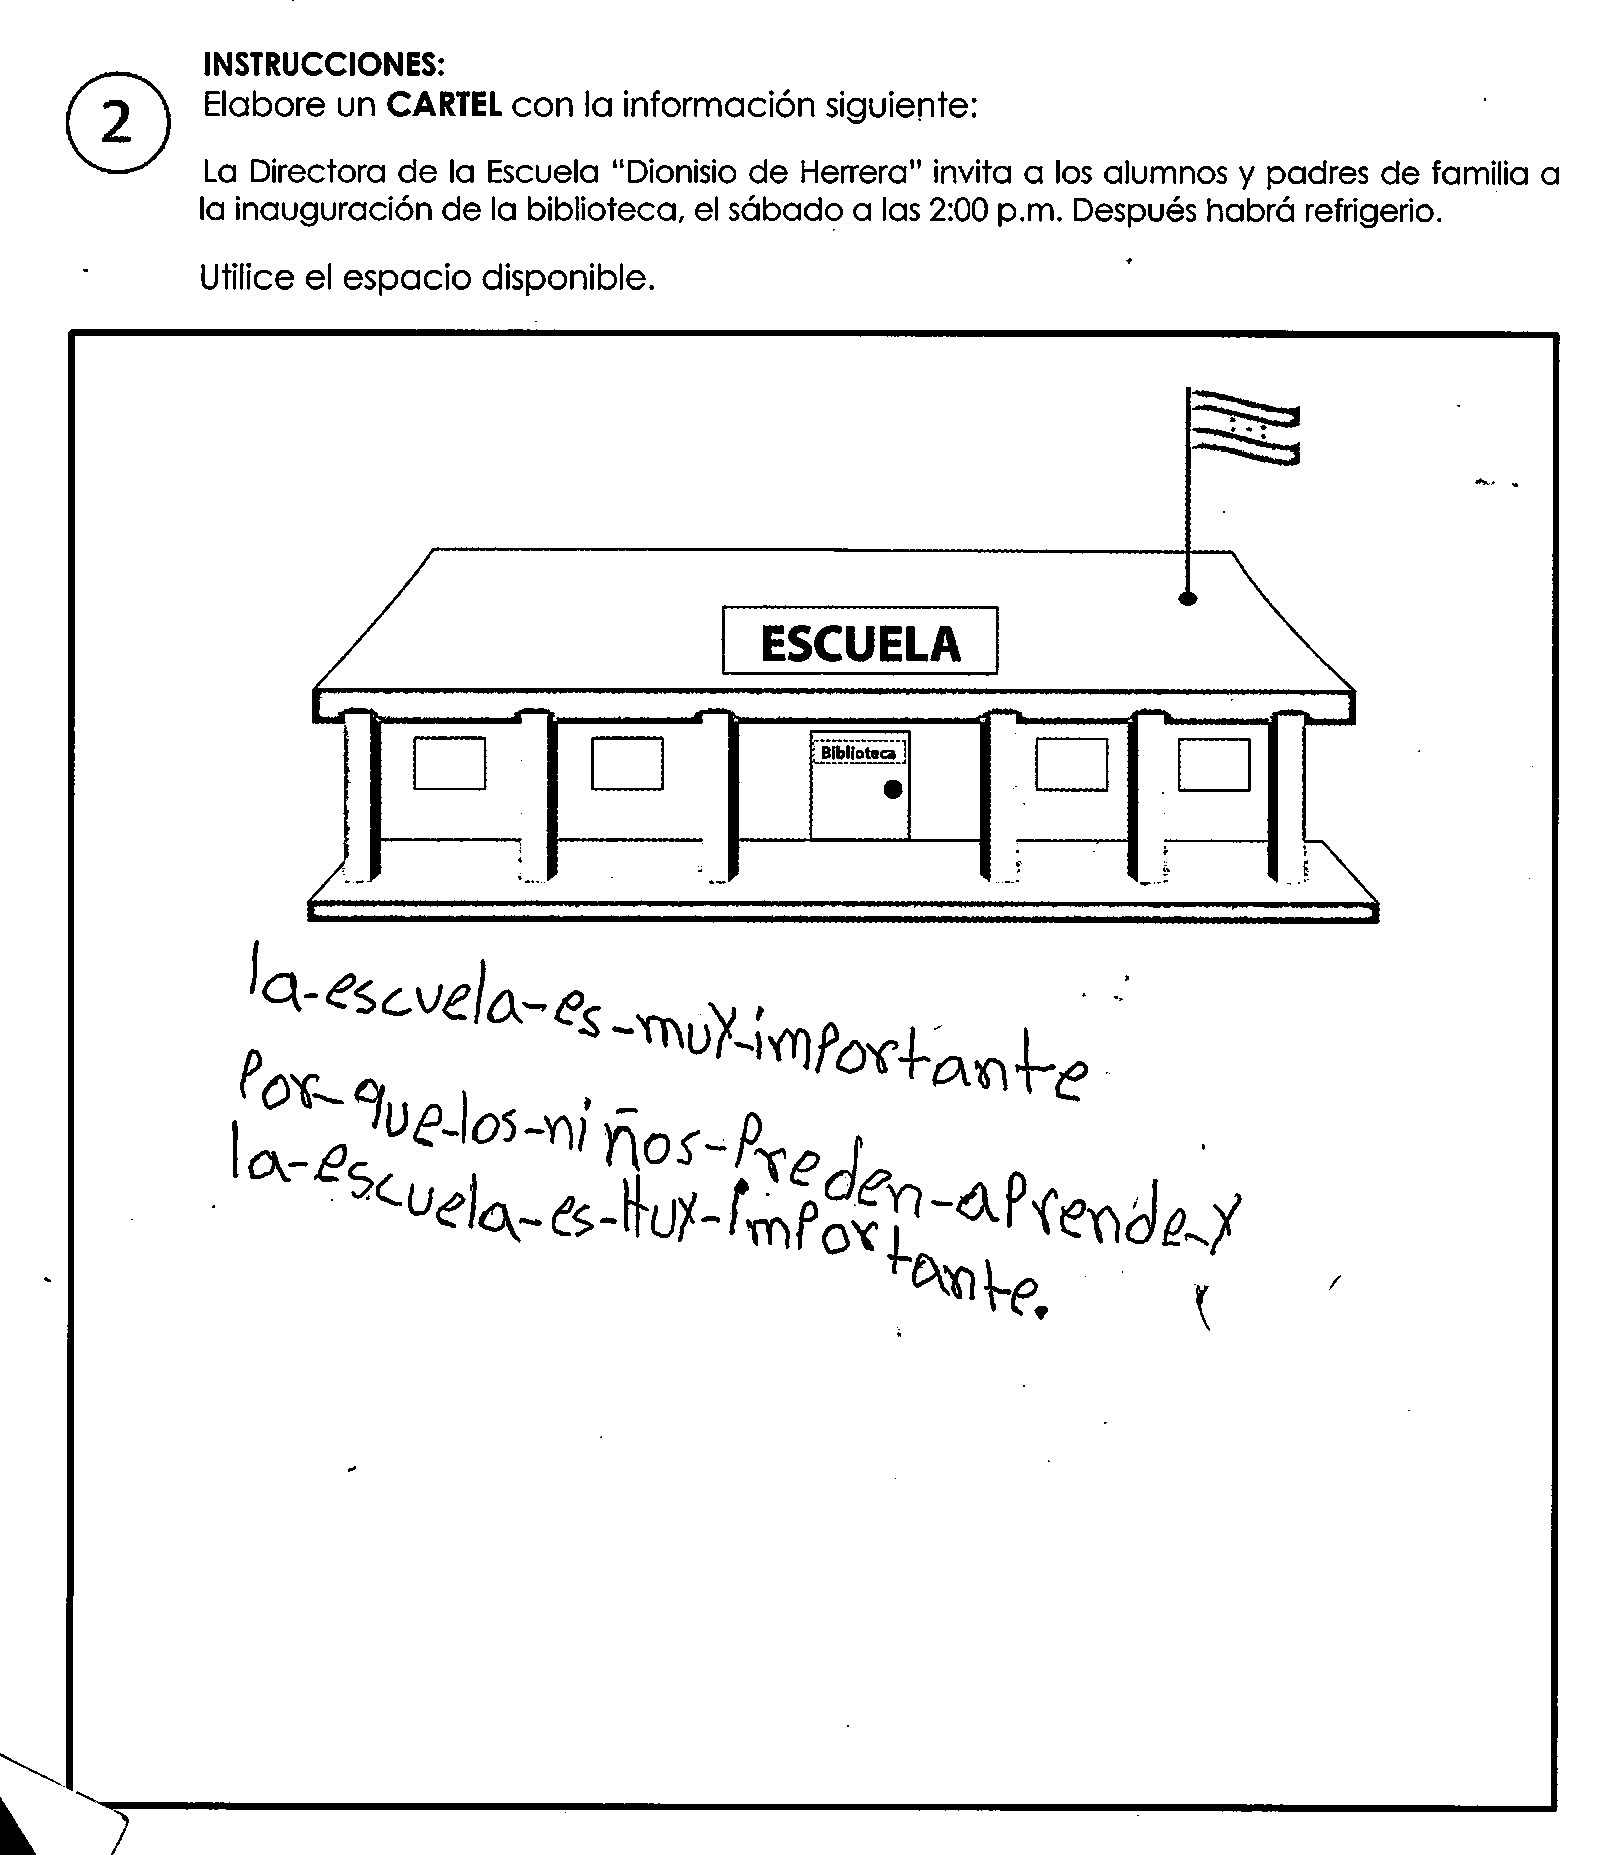 INSTRUCCIONES:
2
Elabore un CARTEL con la información siguiente:
La Directora de la Escuela "Dionisio de Herrera" invita a los alumnos y padres de familia a
la inauguración de la biblioteca, el sábado a las 2:00 p.m. Después habrá refrigerio.
Utilice el espacio disponible.
ESCUELA
Biblioteca
la-escuela-es-muy-importante
Por-que-los-niños-Preden-aprende-y
la-escuela-es-Muy-importante.